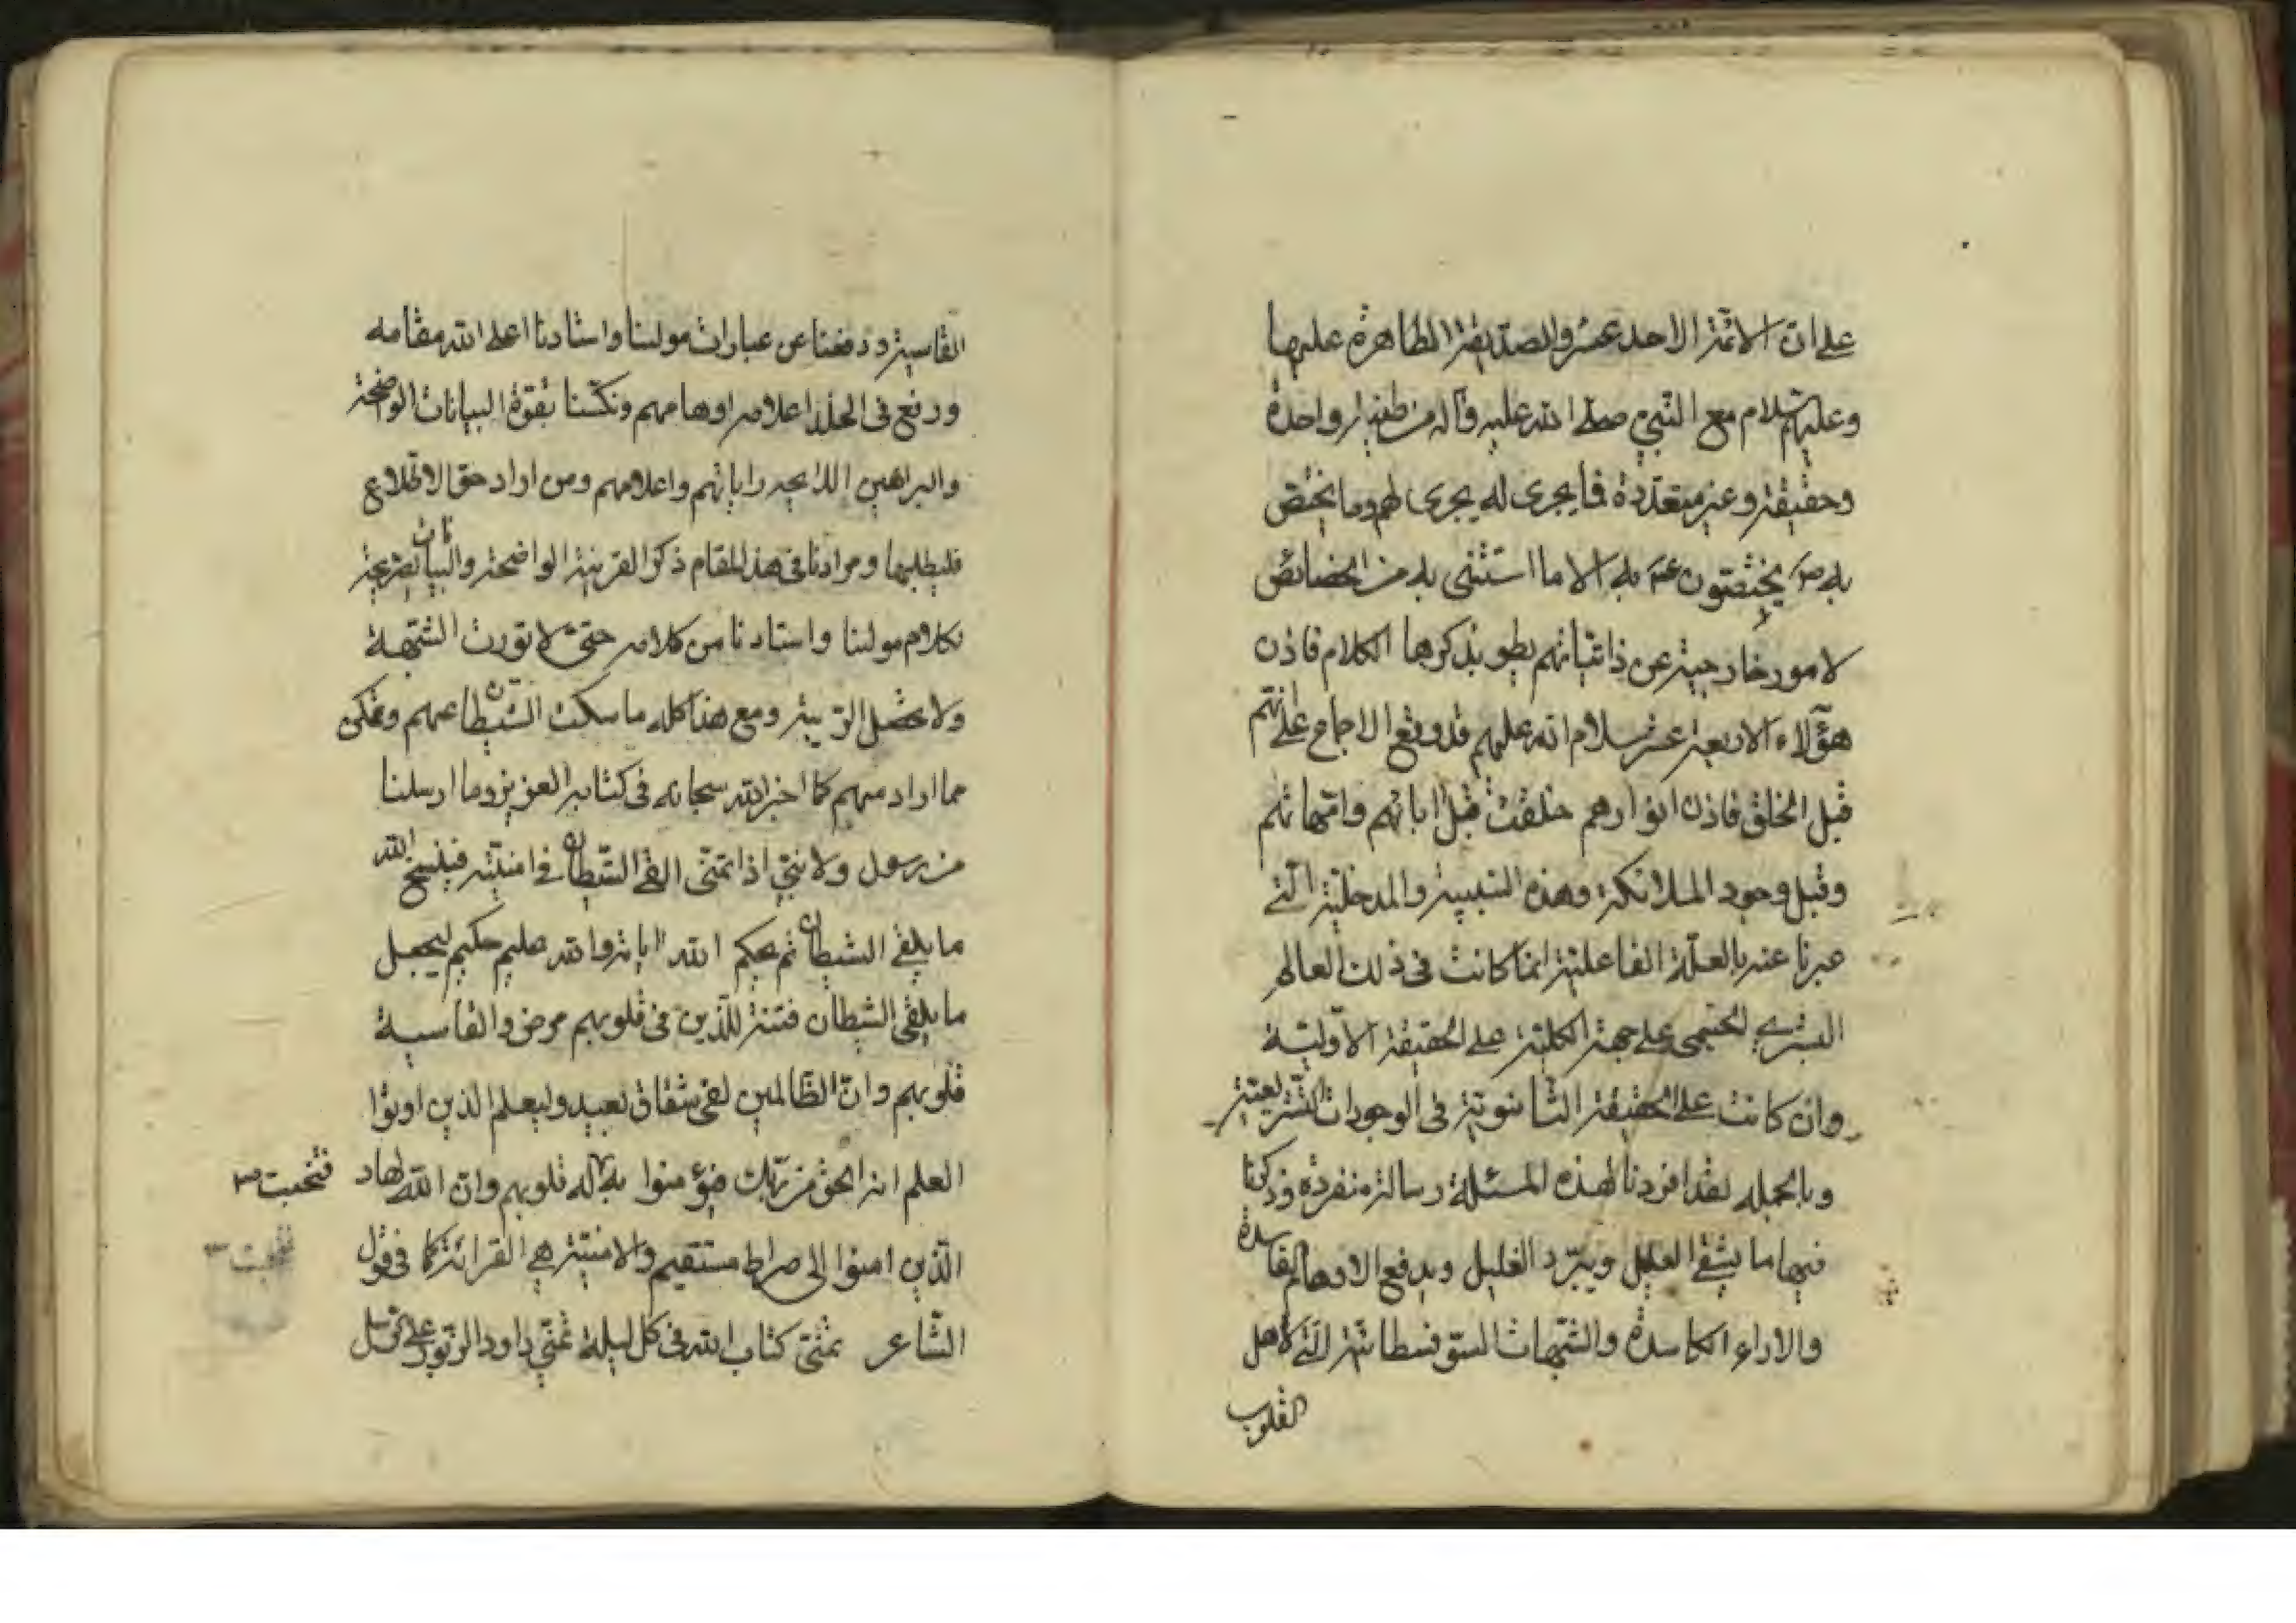 على ان الائمة الاحد عشر والصديقة الطاهرة عليها
وعليهم السلام مع النبي صلى الله عليه وآله من طينة واحدة
وحقيقة وغير متعددة فما يجري له يجري لهم وما يختص
به ص يختصون ع به الا ما استثنى به من الخصائص
لامور خارجية عن ذاتياتهم يطو بذكرها الكلام فاذن
هؤلاء الاربعة عشر سلام الله عليهم قد وقع الاجماع على انهم
قبل الخلق فاذن انوارهم خلقت قبل ابائهم وامهاتهم
وقبل وجود الملائكة وهذه السببية والمدخلية التي
عبرنا عنه بالعلة الفاعلية انما كانت في ذلك العالم
البشري الجسمي على جهة الكلية على الحقيقة الاولية
وان كانت على الحقيقة الثانوية في الوجودات التشريعية
وبالجمله لقد افردنا لهذه المسئلة رسالة منفردة وذكرنا
فيها ما يشفي العليل ويبرد الغليل ويدفع الاوهام الفاسدة
والاراء الكاسدة والشبهات السوفسطائية التي لاهل
القلوب
القاسية ودفعنا عن عبارات مولينا واستادنا اعلى الله مقامه
ورفع في الخلد اعلامه اوهامهم ونكسنا بقوة البيانات الواضحة
والبراهين اللايحه راياتهم واعلامهم ومن اراد حق الاطلاع
فليطلبها ومرادنا في هذا المقام ذكر القرينة الواضحة والبيانات الصريحة
لكلام مولينا واستادنا من كلامه حتى لا تورث الشبهة
ولا تحصل الريبة ومع هذا كله ما سكت الشيطان عنهم وتمكن
مما اراد منهم كما اخبر الله سبحانه في كتابه العزيز وما ارسلنا
من رسول ولا نبي اذا تمنى القى الشيطان في امنيته فينسخ الله
ما يلقي الشيطان ثم يحكم الله اياته والله عليم حكيم ليجعل
ما يلقى الشيطان فتنة للذين في قلوبهم مرض والقاسية
قلوبهم وان الظالمين لفي شقاق بعيد وليعلم الذين اوتوا
العلم انه الحق من ربك فيؤمنوا به له قلوبهم وان الله لهاد
فتخبت
الذين امنوا الى صراط مستقيم والامنية هي القرائة كما في قول
فتخبت
الشاعر تمنى كتاب الله في كل ليلة تمني داود الزبور على رسل